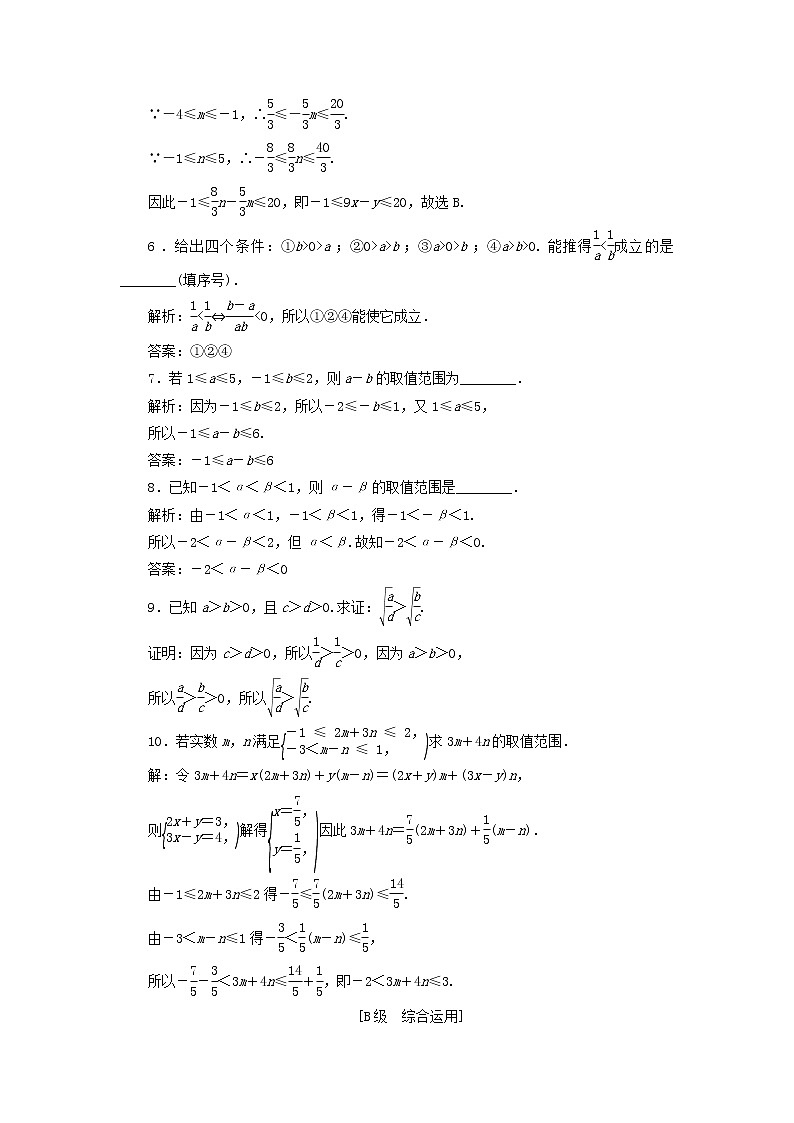 ∵－4≤m≤－1,∴5/3≤－5/3m≤20/3.
∵－1≤n≤5,∴－8/3≤8/3n≤40/3.
因此－1≤8/3n－5/3m≤20,即－1≤9x－y≤20,故选 B.
6．给出四个条件:①b>0>a;②0>a>b;③a>0>b;④a>b>0.能推得1/a<1/b成立的是
________(填序号).
解析:1/a<1/b⇔(b－a)/ab<0,所以①②④能使它成立.
答案:①②④
7.若 1≤a≤5,－1≤b≤2,则 a－b 的取值范围为________.
解析:因为－1≤b≤2,所以－2≤－b≤1,又 1≤a≤5,
所以－1≤a－b≤6.
答案:－1≤a－b≤6
8.已知－1＜α＜β＜1,则 α－β 的取值范围是________.
解析:由－1＜α＜1,－1＜β＜1,得－1＜－β＜1.
所以－2＜α－β＜2,但 α＜β.故知－2＜α－β＜0.
答案:－2＜α－β＜0
9.已知 a＞b＞0,且 c＞d＞0.求证:√(a/d)＞√(b/c).
证明:因为 c＞d＞0,所以1/d＞1/c＞0,因为 a＞b＞0,
所以a/d＞b/c＞0,所以√(a/d)＞√(b/c).
10.若实数 m,n 满足{－1 ≤ 2m＋3n ≤ 2, －3＜m－n ≤ 1,)求 3m＋4n 的取值范围.
解:令 3m＋4n＝x(2m＋3n)＋y(m－n)＝(2x＋y)m＋(3x－y)n,
则{2x＋y＝3, 3x－y＝4,)解得{x＝7/5, y＝1/5,)因此 3m＋4n＝7/5(2m＋3n)＋1/5(m－n).
由－1≤2m＋3n≤2 得－7/5≤7/5(2m＋3n)≤14/5.
由－3＜m－n≤1 得－3/5＜1/5(m－n)≤1/5,
所以－7/5－3/5＜3m＋4n≤14/5＋1/5,即－2＜3m＋4n≤3.
[B 级　综合运用]